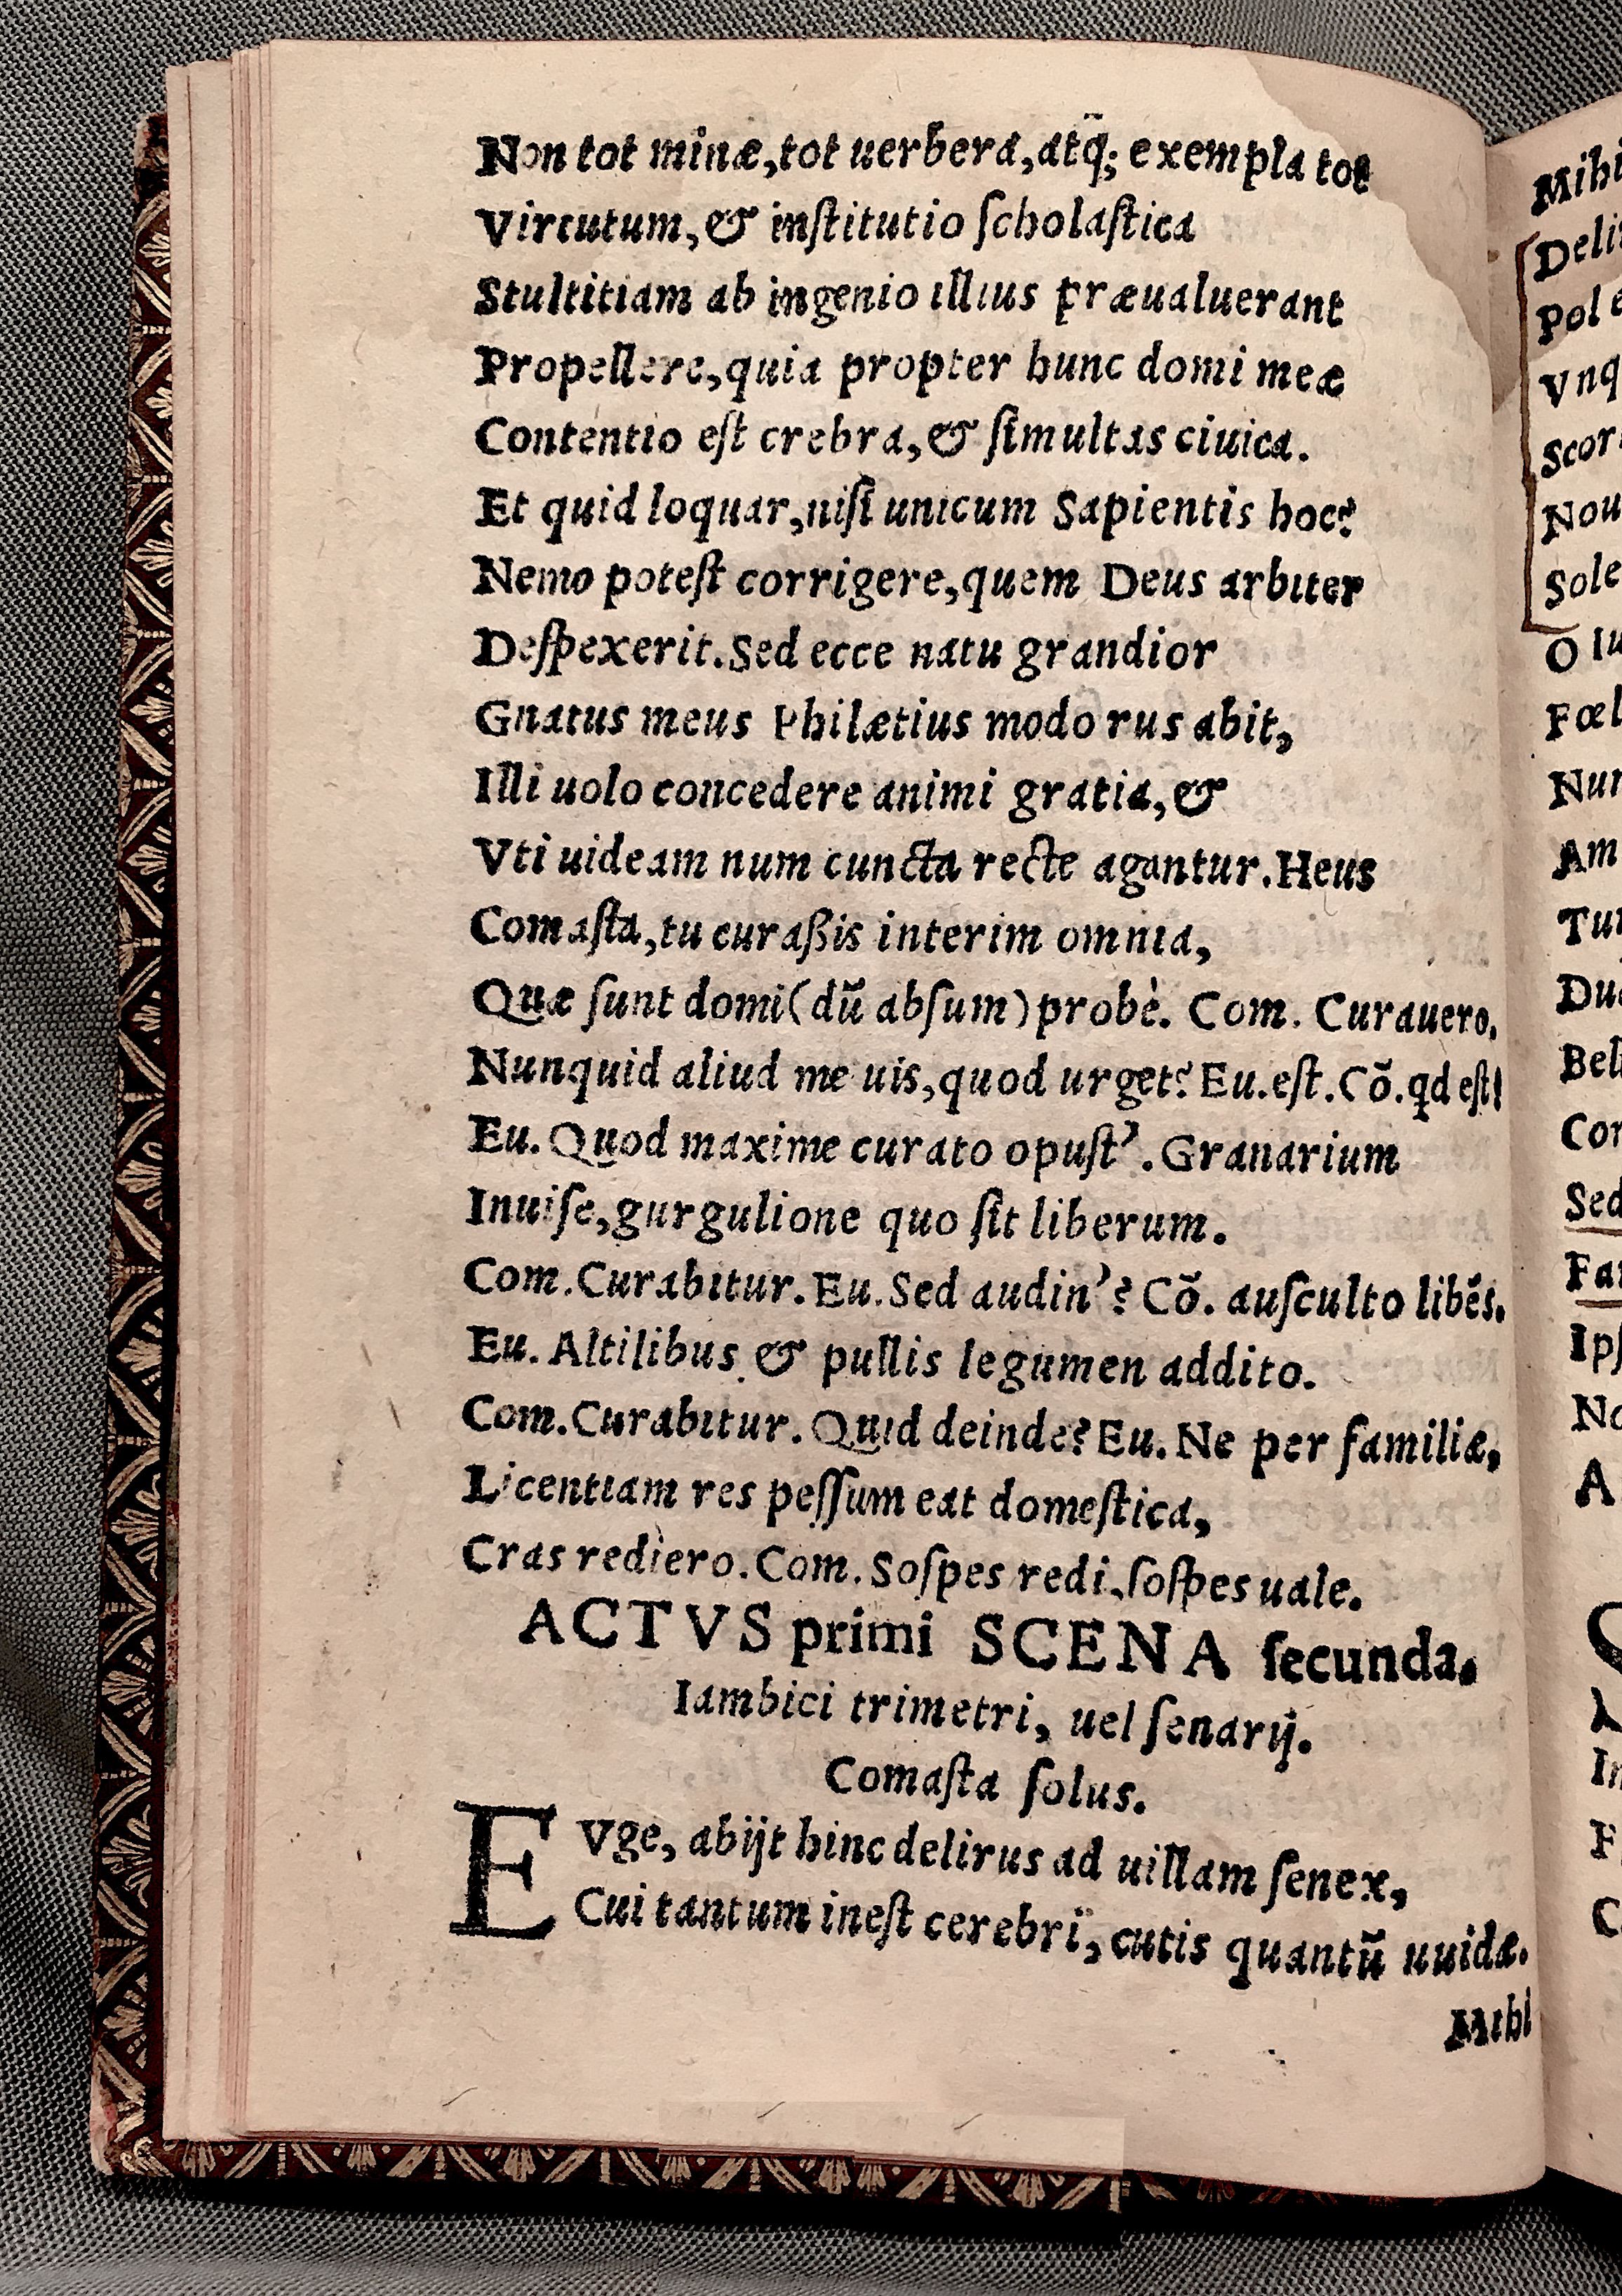 Non tot minæ, tot uerbera, atq̃; exempla tot
Virtutum, & inſtitutio ſcholaſtica
Stultitiam ab ingenio illius præualuerant
Propellere, quia propter hunc domi meæ
Contentio eſt crebra, & ſimultas ciuica.
Et quid loquar, niſi unicum Sapientis hoc?
Nemo poteſt corrigere, quem Deus arbiter
Deſpexerit. Sed ecce natu grandior
Gnatus meus Philætius modo rus abit,
Illi uolo concedere animi gratia, &
Vti uideam num cuncta recte agantur. Heus
Comaſta, tu curaßis interim omnia,
Quæ ſunt domi (dũ abſum) probè. Com. Curauero.
Nunquid aliud me uis, quod urget? Eu. eſt. Cõ. qd eſt?
Eu. Quod maxime curato opuſt'. Granarium
Inuiſe, gurgulione quo ſit liberum.
Com. Curabitur. Eu. Sed audin'? Cõ. auſculto libẽs.
Eu. Altilibus & pullis legumen addito.
Com. Curabitur. Quid deinde? Eu. Ne per familiæ,
Licentiam res peſſum eat domeſtica,
Cras rediero. Com. Soſpes redi, ſoſpes uale.
ACTVS primi SCENA ſecunda.
Iambici trimetri, uel ſenarij.
Comaſta ſolus.
EVge, abijt hinc delirus ad uillam ſenex,
Cui tantum ineſt cerebri, cutis quantũ uuidæ.
Mihi
Mihi
Pol
O